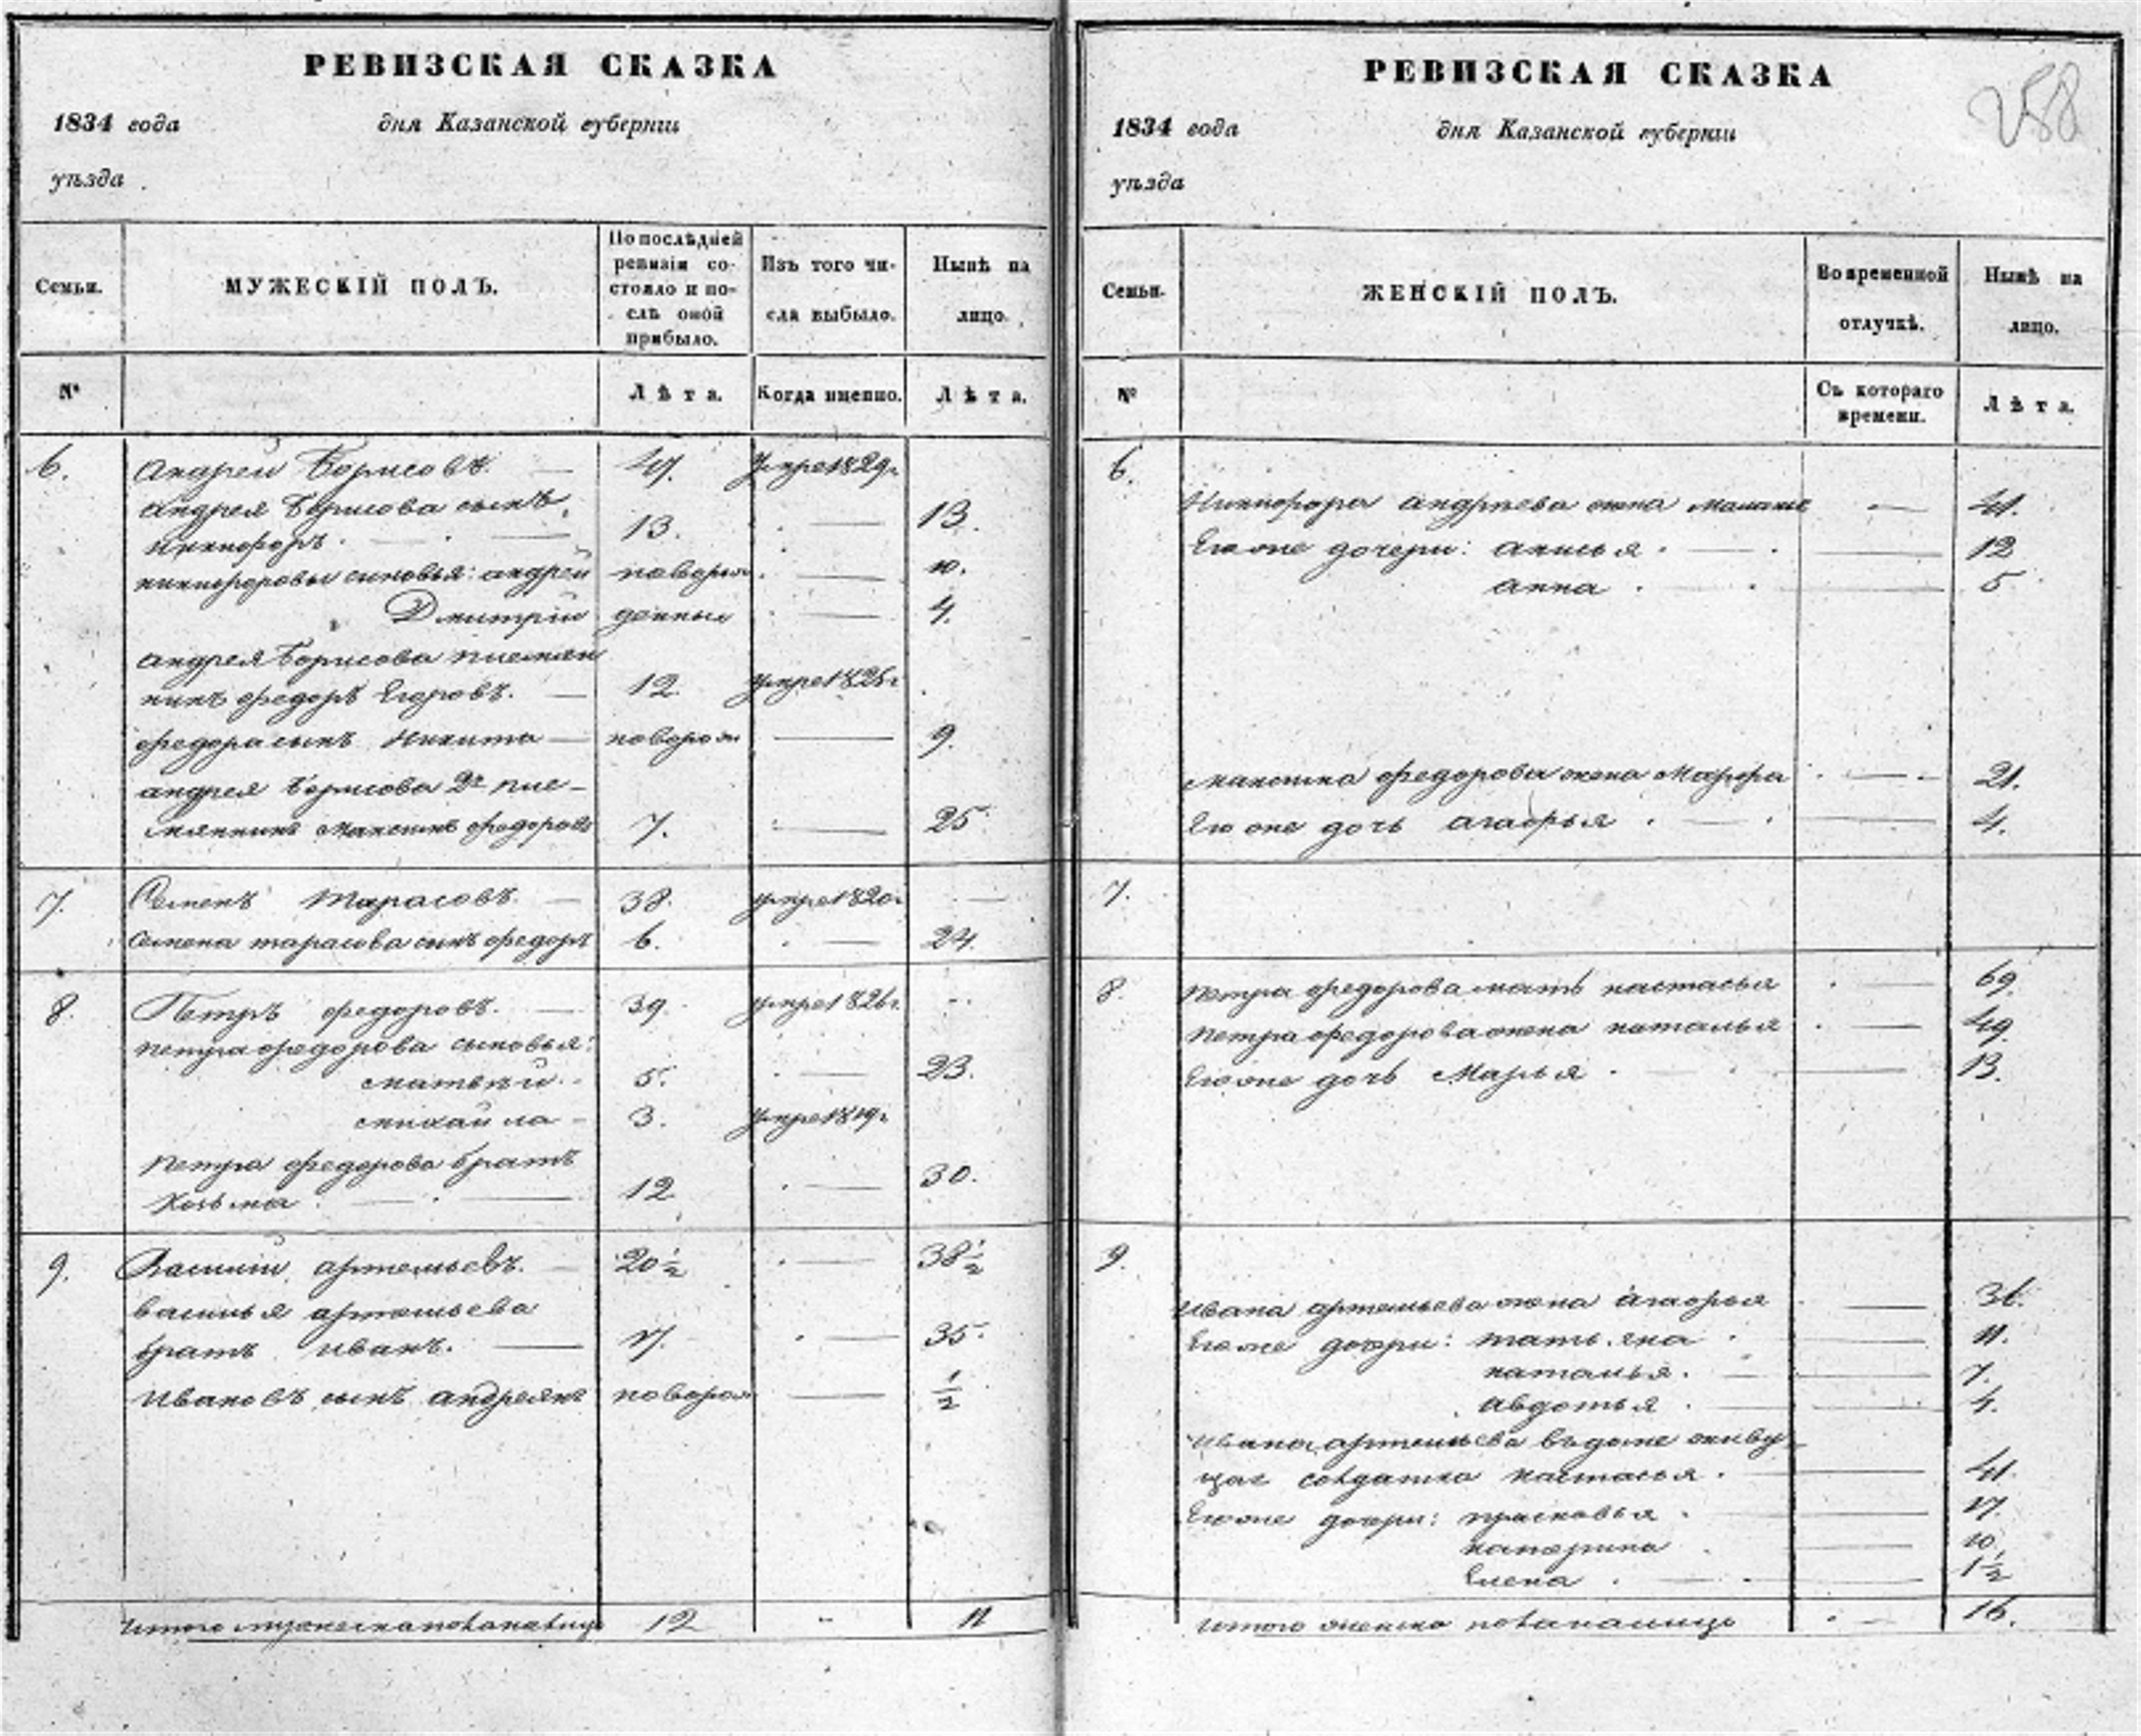 РЕВИЗСКАЯ СКАЗКА
1834 года дня Казанской губернии
уѣзда
Семьи.
МУЖЕСКІЙ ПОЛЪ.
По послѣдней ревизіи состояло и послѣ оной прибыло.
Изъ того числа выбыло.
Нынѣ на лицо.
№
Лѣта.
Когда именно.
Лѣта.
6. Андрей Борисовъ. — 47. Умре 1829г.
андрея Борисова сынъ,
никифоръ. — 13. — 13.
никифоровы сыновья: андрей новорож — 10.
Дмитрій денные — 4.
андрея Борисова племян
никъ федоръ Егоровъ. — 12. умре 1825г.
федора сынъ Никита — новорож — 9.
андрея Борисова 2й пле-
мянникъ Максимъ федоровъ 7. — 25.
7. Семенъ Тарасовъ. — 38. умре 1820г. —
Семена тарасова сынъ федоръ 6. — 24.
8. Петръ федоровъ. — 39. умре 1826г.
петра федорова сыновья:
матвѣй. 5. — 23.
михайла 3. Умре 1819г.
Петра федорова братъ
Козьма. — 12. — 30.
9. Василій артемьевъ. — 20½ — 38½
василья артемьева
братъ иванъ. — 17. — 35.
Ивановъ сынъ андреянъ новорож — ½
Итого мужеска пола налицо 12 " 11
РЕВИЗСКАЯ СКАЗКА
258
1834 года дня Казанской губернии
уѣзда
Семьи.
ЖЕНСКІЙ ПОЛЪ.
Во временной отлучкѣ.
Нынѣ на лицо.
№
Съ котораго времени.
Лѣта.
6.
Никифора андрѣева жена Маланья — 41.
Его же дочери: анисья. — 12
анна. — 5
максима федорова жена Марфа — 21.
Его же дочь агафья. — 4.
7.
8. Петра федорова мать настасья — 69.
Петра федорова жена наталья — 49.
Его же дочь Марья. — 13.
9.
Ивана артемьева жена агафья — 36.
Его же дочери: татьяна. — 11.
наталья. — 7.
авдотья. — 4.
Ивана артемьева въ доме живу
щае солдатка настасья. — 41.
Ею же дочери: прасковья. — 17.
катерина. — 10.
Елена. — 1½
Итого женска пола налицо — 16.